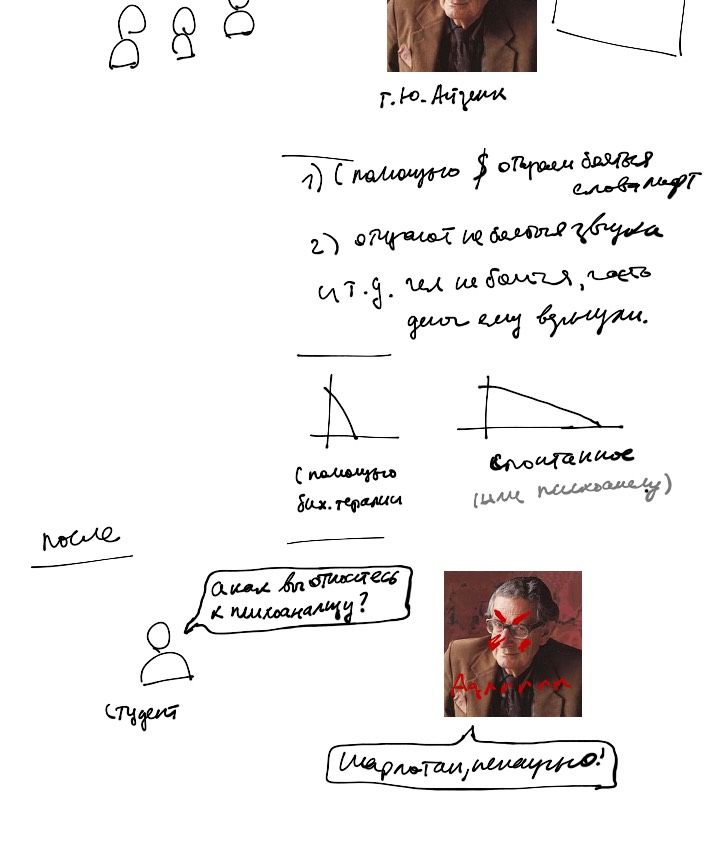 Г.Ю. Айзенк
1) С помощью $ отучаем бояться
слова лифт
2) отучают не бояться звука
и т.д. чел не боится, часто
делог ему взрыухи.
С помощью
бих. терапии
Спонтанное
(или психоанализ)
после
а как вы относитесь
к психоанализу?
Студент
Шарлотан, ненаучно!